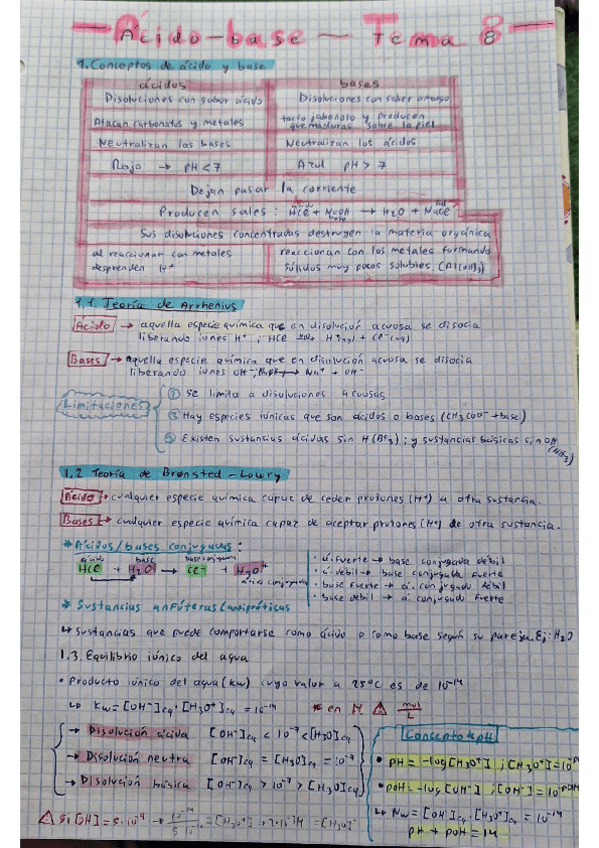 Ácido-base ~ Tema 8
1. Conceptos de ácido y base
ácidos
bases
Disoluciones con sabor ácido
Disoluciones con sabor amargo
Atacan carbonatos y metales
tacto jabonoso y producen
quemaduras sobre la piel
Neutralizan las bases
Neutralizan los ácidos
Rojo → pH < 7
Azul pH > 7
Dejan pasar la corriente
Producen sales: HCl + NaOH → H2O + NaCl
Sus disoluciones concentradas destruyen la materia orgánica
al reaccionar con metales
desprenden H+
reaccionan con los metales formando
sólidos muy pocos solubles (Al(OH)3)
1.1. Teoría de Arrhenius
Ácido → aquella especie química que en disolución acuosa se disocia
liberando iones H+; HCl → H+(aq) + Cl-(aq)
Bases → aquella especie química que en disolución acuosa se disocia
liberando iones OH-; → Na+ + OH-
Limitaciones
① Se limita a disoluciones acuosas
② Hay especies iónicas que son ácidos o bases (CH3COO- → base)
③ Existen sustancias ácidas sin H (BF3); y sustancias básicas sin OH
(NH3)
1.2 Teoría de Brønsted-Lowry
Ácido → cualquier especie química capaz de ceder protones (H+) a otra sustancia.
Bases → cualquier especie química capaz de aceptar protones (H+) de otra sustancia.
* Ácidos/bases conjugadas:
ácido base base conjugada
HCl + H2O → Cl- + H3O+
ácido conjugado
· á. fuerte → base conjugada débil
· á. débil → base conjugada fuerte
· base fuerte → á. conjugado débil
· base débil → á. conjugado fuerte
* Sustancias anfóteras (anfipróticas
↳ sustancias que puede comportarse como ácido o como base según su pareja. Ej: H2O
1.3. Equilibrio iónico del agua
• Producto iónico del agua (Kw) cuyo valor a 25ºC es de 10-14
↳ Kw = [OH-]eq · [H3O+]eq = 10-14
* en M ⚠ mol/L
→ Disolución ácida [OH-]eq < 10-7 < [H3O+]eq
→ Disolución neutra [OH-]eq = [H3O+]eq = 10-7
→ Disolución básica [OH-] > 10-7 > [H3O+]eq
Concepto de pH
• pH = -log[H3O+]; [H3O+] = 10-pH
• pOH = -log[OH-]; [OH-] = 10-pOH
↳ Kw = [OH-]eq · [H3O+]eq = 10-14
pH + pOH = 14